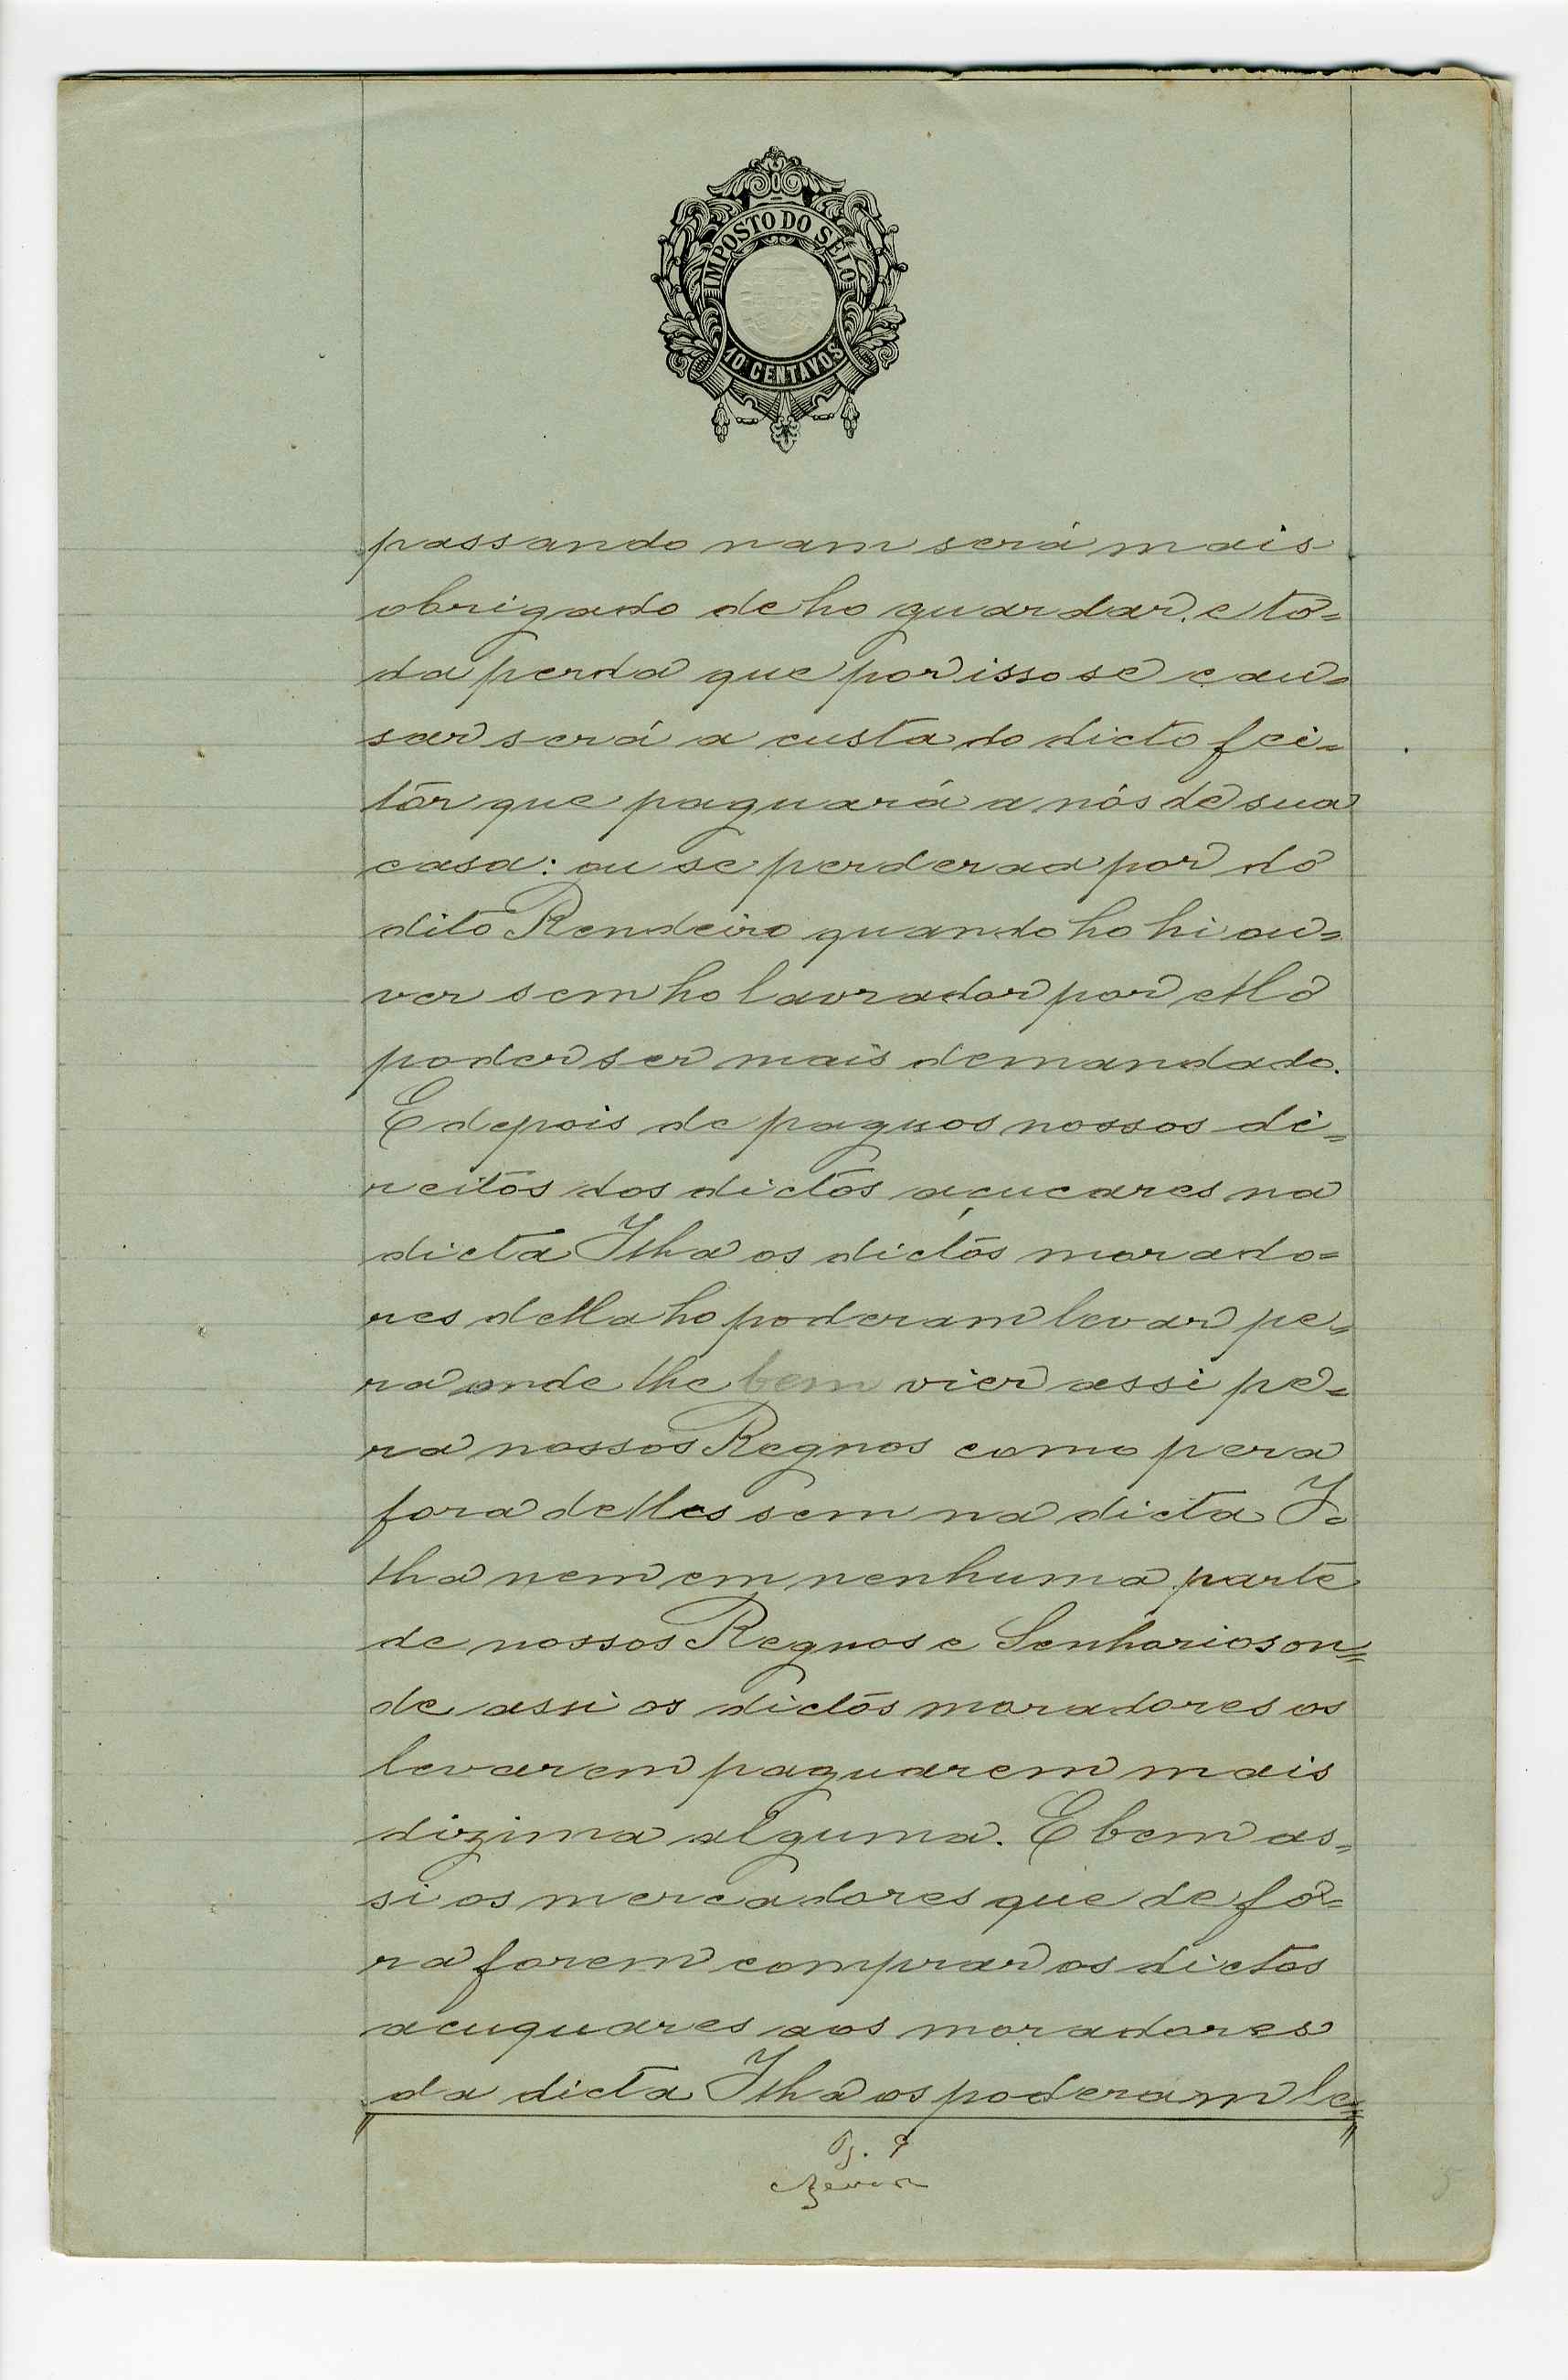 IMPOSTO DO SELO
10 CENTAVOS
passando nam será mais
obrigado de ho guardar, e to=
da perda que por isso se cau=
sar será a custa do dicto fei=
tor que paguará a nós de sua
casa: ou se perderaa por do
dito Rendeiro quando ho hi ou=
ver sem ho lavrador por ello
poder ser mais demandado.
E depois de paguos nossos di=
reitos dos dictos açucares na
dicta Ilha os dictos morado=
res della ho poderam levar pe=
ra onde lhe bem vier assi pe=
ra nossos Regnos como pera
fora delles sem na dicta I=
lha nem em nenhuma parte
de nossos Regnos e Senhorios on=
de assi os dictos moradores os
levarem paguarem mais
dizima alguma. E bem as=
si os mercadores que de fo=
ra forem comprar os dictos
acuquares aos moradores
da dicta Ilha os poderam le=
Pg. 9
5